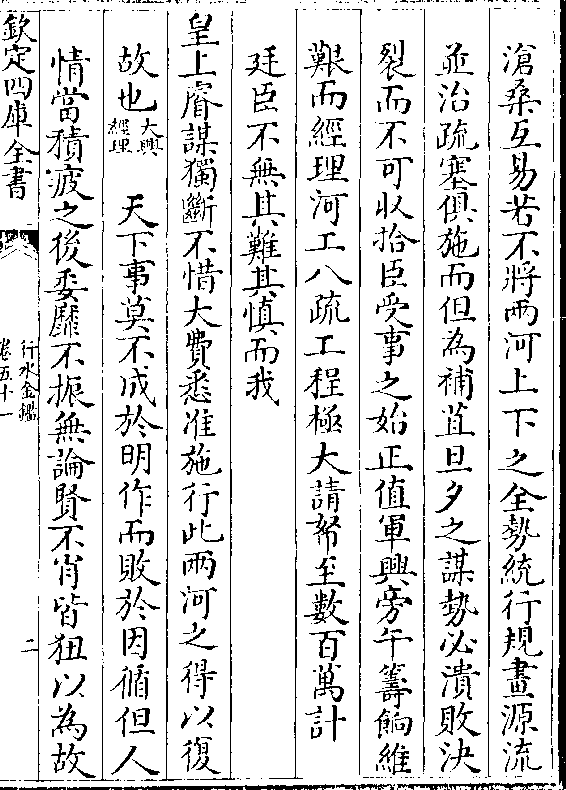 滄桑互易若不將兩河上下之全勢統行規畫源流
並治疏塞俱施而但為補苴旦夕之謀勢必潰敗決
裂而不可收拾臣受事之始正值軍興旁午籌餉維
艱而經理河工八疏工程極大請帑至數百萬計
廷臣不無其難其慎而我
皇上睿謀獨斷不惜大費悉准施行此兩河之得以復
故也大興經理 天下事莫不成於明作而敗於因循但人
情當積疲之後委靡不振無論賢不肖皆狃以為故
欽定四庫全書
行水金鑑
卷五十一
二